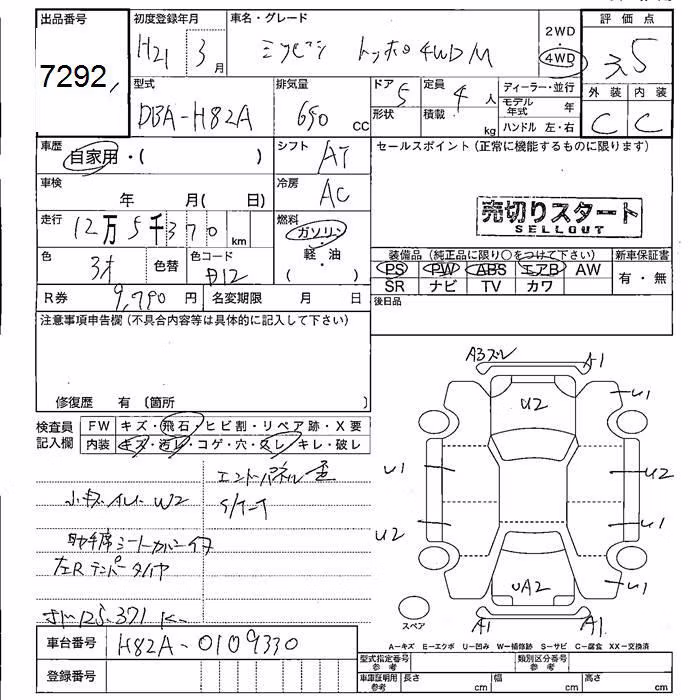 出品番号 初度登録年月 車名・グレード 2WD 評価点
7292 H21 3月 ミツビシ トッポ 4WD M 4WD 3.5
型式 排気量 ドア 定員 ディーラー・並行 外装 内装
DBA-H82A 650 cc 5 4人 モデル年式 年 C C
形状 積載 kg ハンドル 左・右
車歴 自家用・( ) シフト AT セールスポイント(正常に機能するものに限ります)
車検 年 月( 日) 冷房 AC
売切りスタート
SELLOUT
走行 12万5千370km 燃料 ガソリン・軽油 ( )
装備品(純正品に限り○をつけて下さい) 新車保証書
PS PW ABS エアB AW 有・無
SR ナビ TV カワ
色 色替 色コード
R券 9,790円 名変期限 月 日 後日品
注意事項申告欄(不具合内容等は具体的に記入して下さい)
修復歴 有 〔箇所
検査員記入欄 FW キズ・飛石・ヒビ割・リペア跡・X要
内装 キズ・汚レ・コゲ・穴・スレ・キレ・破レ
A3 A1
U2 U1
U1 U2
U2 U1
UA2 U1
A1 A1
スペア
W2
助手席シートカバー
左Rテンパータイヤ
125,371
A-キズ E-エクボ U-凹み W-補修跡 S-サビ C-腐食 XX-交換済
車台番号 H82A-0109330
型式指定番号 参考 類別区分番号 参考
登録番号 車庫証明用 参考 長さ cm 幅 cm 高さ cm